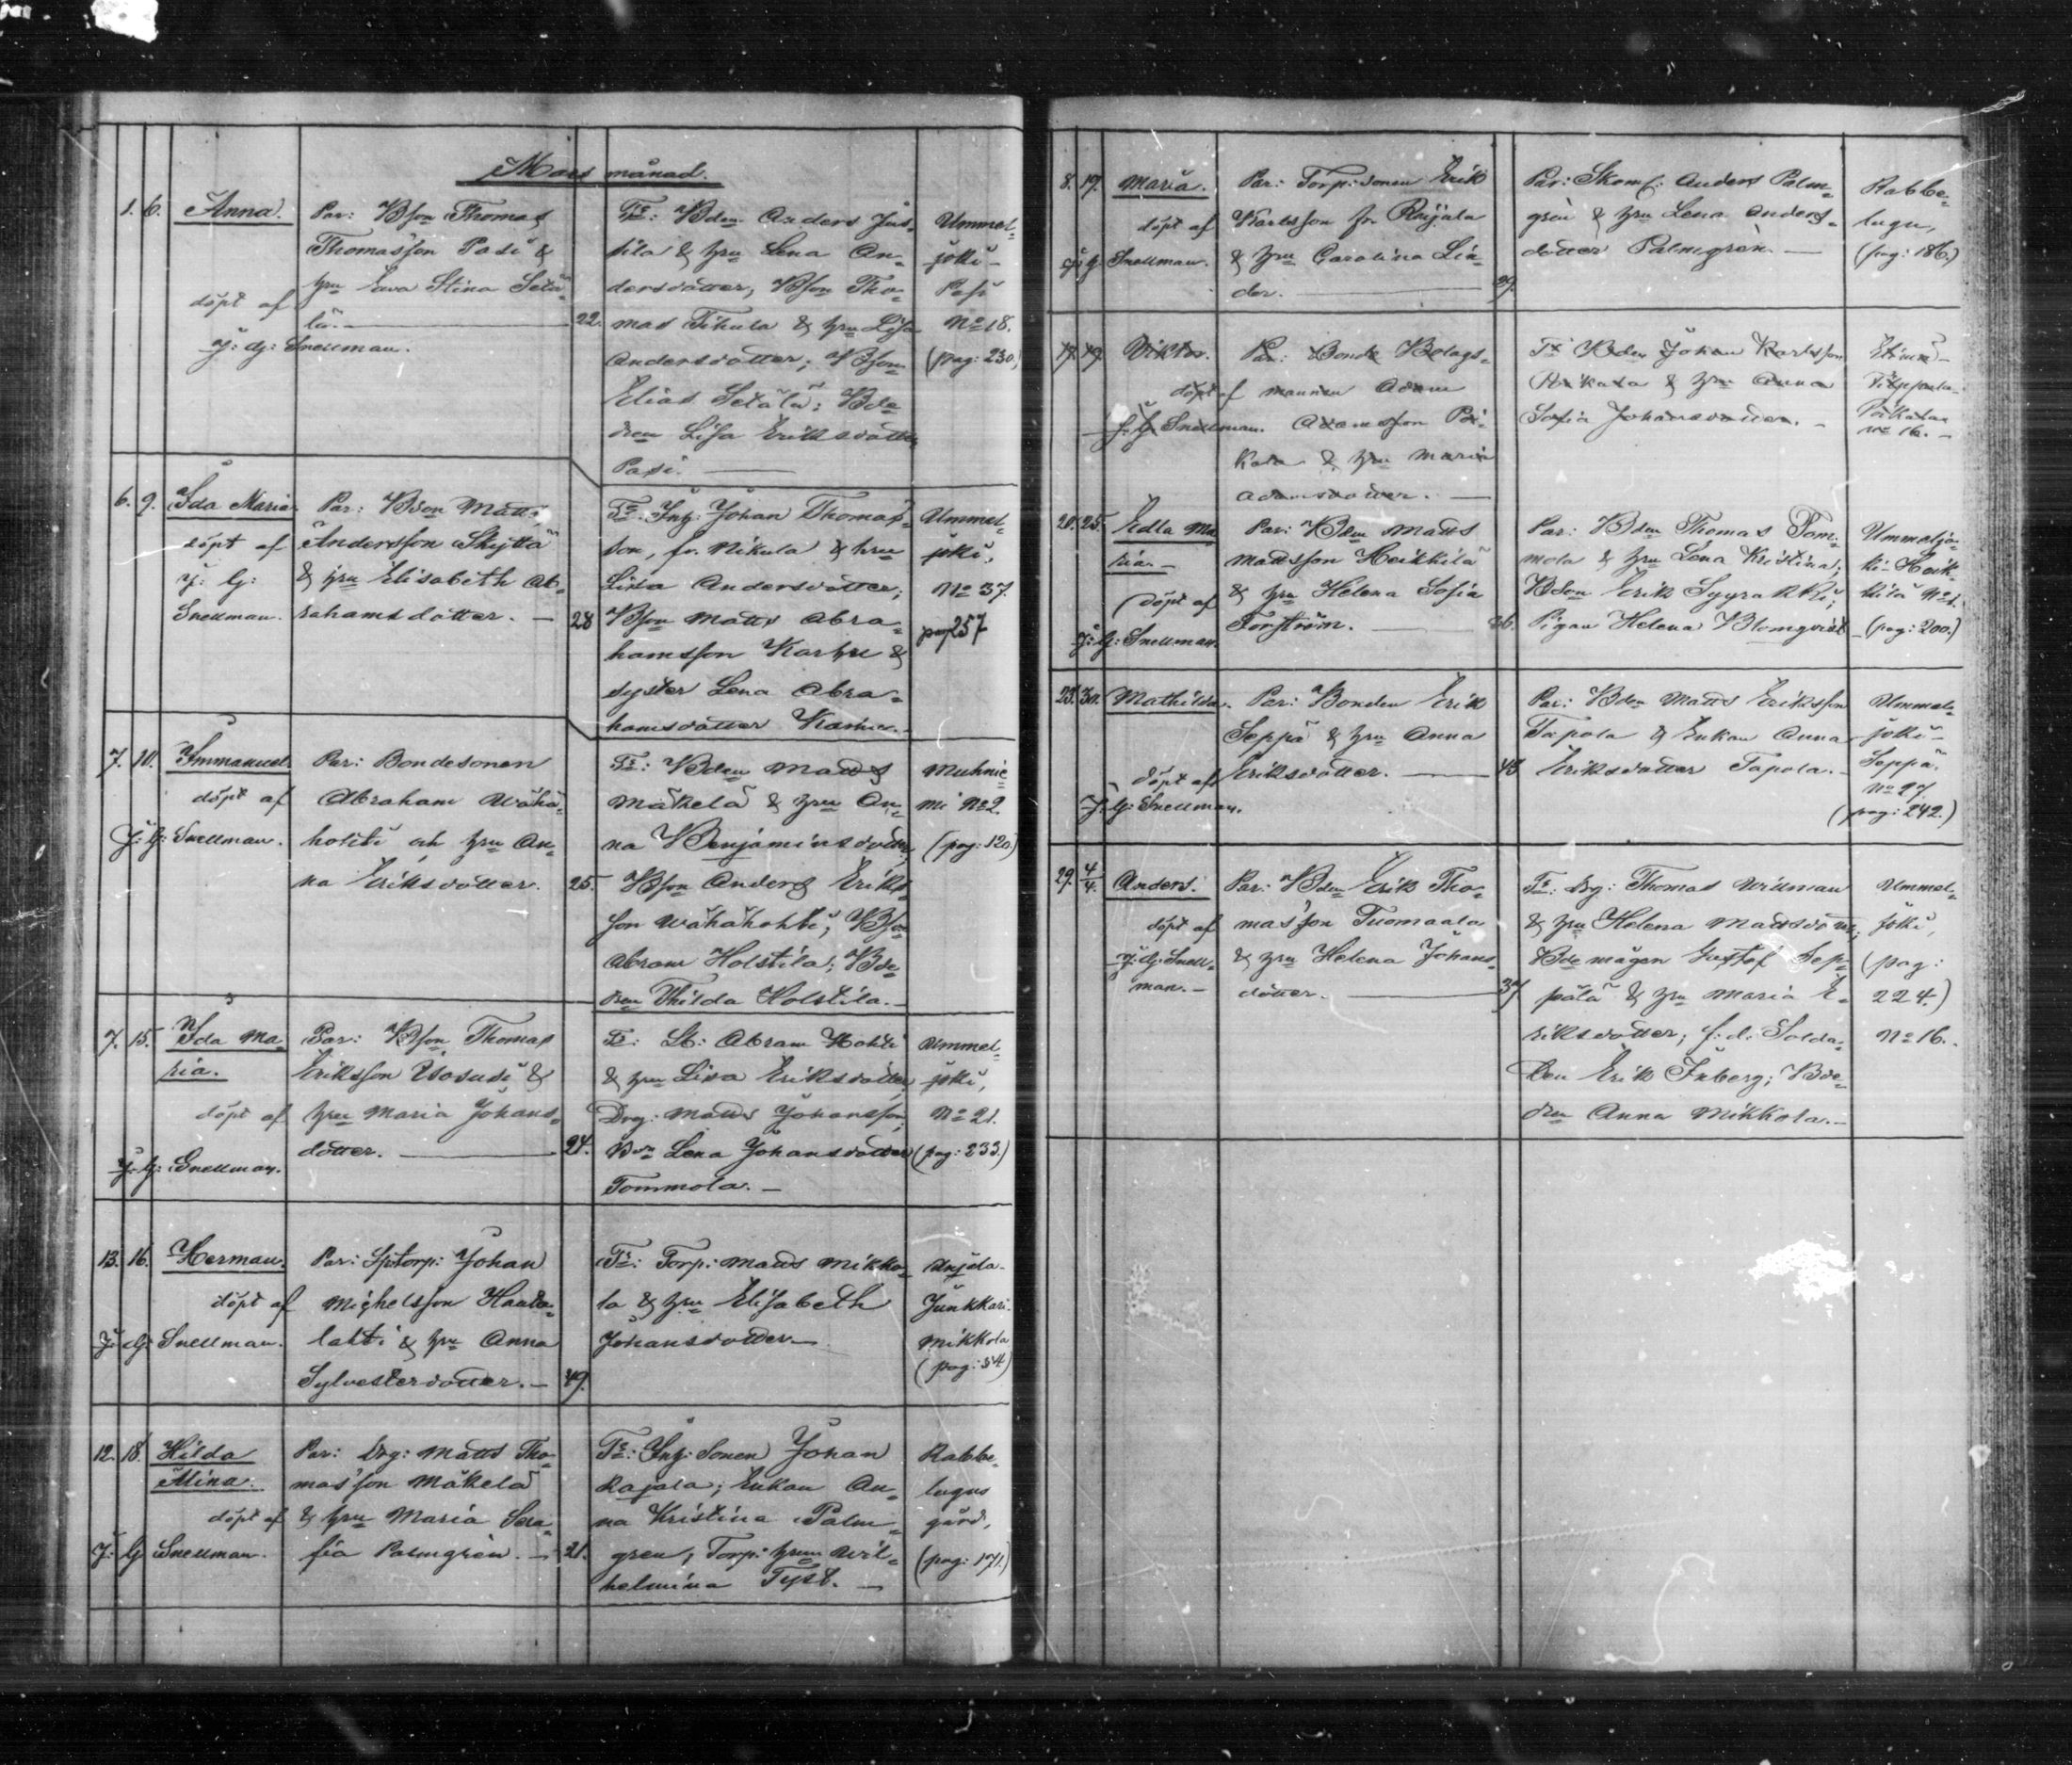 Mars månad.
1. 6. Anna.
döpt af
J: G: Snellman.
Par: Bson Thomas
Thomasson Pasi &
hru Eva Stina Setä-
lä. — 22.
Fr: Bden Anders Jus-
sila & hru Lena An-
dersdotter, Bson Tho-
mas Tikula & hru Lisa
Andersdotter; Bson
Elias Setälä; Bde
dren Lisa Eriksdotter
Pasi. —
Ummel-
joki -
Pasi
No 18.
(pag: 230)
6. 9. Ida Maria.
döpt af
J: G:
Snellman.
Par: Bson Matts
Andersson Skyttä
& hru Elisabeth Ab-
rahamsdotter. — 28
Fr: Inh: Johan Thomas-
son, fr. Nikula & hru
Lisa Andersdotter;
Bson Matts Abra-
hamsson Karhu &
syster Lena Abra-
hamsdotter Karhu.
Ummel-
joki,
No 37.
pag 257
7. 10. Immanuel
döpt af
J: G: Snellman.
Par: Bondesonen
Abraham Wähä-
hohti och hru An-
na Eriksdotter. 25.
Fr: Bden Matts
Mäkelä & hru An-
na Benjaminsdotter,
Bson Anders Eriks-
son Wähähohti; Bson
Abram Holstila; Bde-
dren Thilda Holstila. -
Muhnie
mi No 2.
(pag: 120)
7. 15. Ida Ma-
ria.
döpt af
J: G: Snellman.
Par: Bson Thomas
Eriksson Isosusi &
hru Maria Johans-
dotter. — 24.
Fr: St: Abram Hohti
& hru Lisa Eriksdotter,
Drg: Matts Johansson;
Bdn Lena Johansdotter
Tommola. -
Ummel-
joki,
No 21.
(pag: 233.)
13. 16. Herman.
döpt af
J: G: Snellman.
Par: Sptorp: Johan
Michelsson Hauta-
lahti & hru Anna
Sylvesterdotter. — 49.
Fr: Torp: Matts Mikko-
la & hru Elisabeth
Johansdotter. —
Anjala-
Junkkari-
Mikkola
(pag: 34)
12. 18. Hilda
Mina.
döpt af
J: G Snellman.
Par: Drg: Matts Tho-
masson Mäkelä
& hru Maria Sera-
fia Palmgrèn. — 21.
Fr: Inh: Sonen Johan
Rajala; Enkan An-
na Kristina Palm-
gren; Torp: hrun Wil-
helmina Tyst. —
Rabbe-
lugus
gård,
(pag: 171.)
8. 19. Maria.
döpt af
J: G: Snellman.
Par: Torp: Sonen Erik
Karlsson fr Raijala
& hru Carolina Lin-
der. — 29.
Par: Skom: Anders Palm-
grèn & hru Lena Anders-
dotter Palmgrèn. —
Rabbe-
lugn,
(pag: 186.)
17. 19. Viktor.
döpt af
J: G: Snellman.
Par: Bonde Bolags-
mannen Adam
Adamsson Pu-
kara & hru Maria
Adamsdotter. —
Fr Bden Johan Karlsson
& hru Anna
Sofia Johansdotter. -
Elimä-
No 16. -
20. 25. Edla Ma
ria. -
döpt af
J: G: Snellman.
Par: Bden Matts
Mattsson Heikkilä
& hru Helena Sofia
Forström. — 26.
Par: Bden Thomas Tom-
mola & hru Lena Kristina;
Bson Erik Syyrakki;
Pigan Helena Blomqvist
Ummeljo-
ki - Heik-
kilä No 1.
(pag: 200.)
23. 30. Mathilda.
döpt af
J: G: Snellman.
Par: Bonden Erik
Seppä & hru Anna
Eriksdotter. — 43
Par: Bden Matts Eriksson
Tapola & Enkan Anna
Eriksdotter Tapola. -
Ummel-
joki -
Seppä.
No 27.
(pag: 242.)
29. 4/4. Anders.
döpt af
J: G: Snell-
man. -
Par: Bden Erik Tho-
masson Tuomaala
& hru Helena Johans-
dotter. — 37
Fr: Drg: Thomas Willman
& hru Helena Mattsdotter;
Bde mågen Gustaf Sep-
pälä & hru Maria E-
riksdotter; f: d: Solda-
ten Erik Inberg; Bde-
dren Anna Mikkola. -
Ummel-
joki,
(pag:
224.)
No 16.